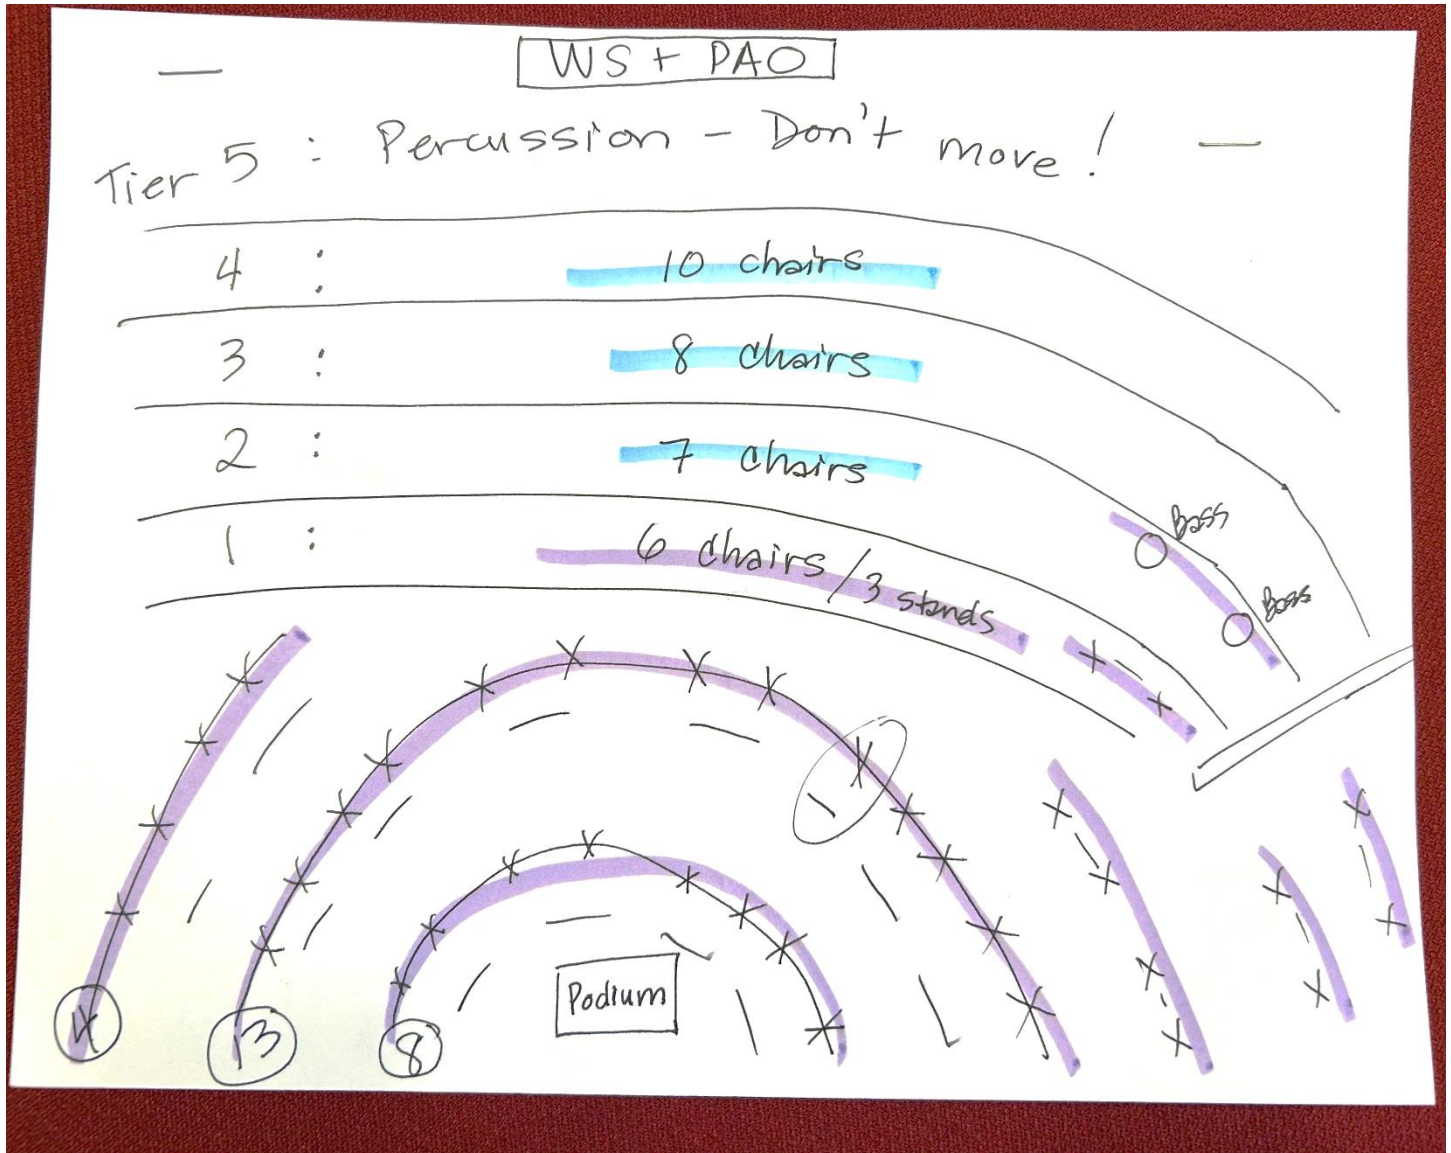 WS + PAO
Tier 5 : Percussion - Don't move!
4 : 10 chairs
3 : 8 chairs
2 : 7 chairs
1 : 6 chairs / 3 stands
Bass
Bass
Podium
4
13
8